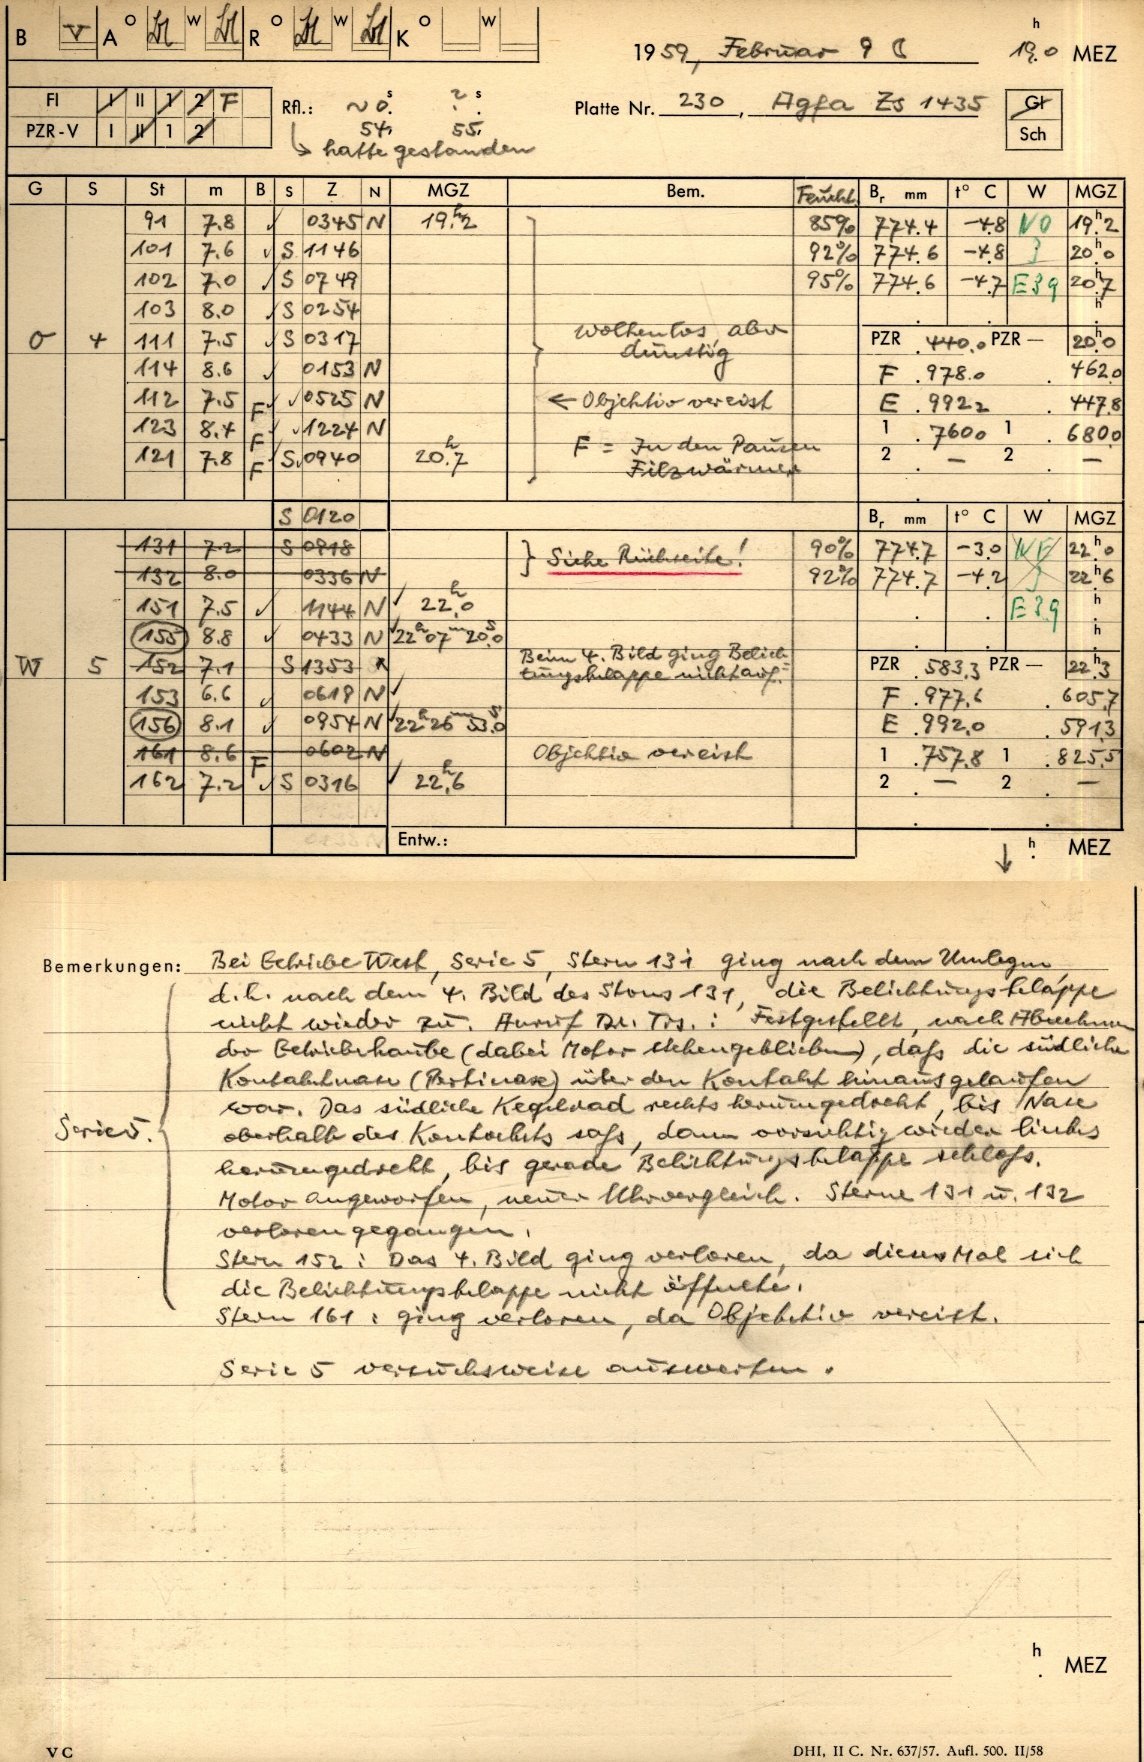 B V A O W R O W K O W
1959, Februar 9 ☾ 19.0 h MEZ
Fl I II 1 2 F
PZR-V I II 1 2
Rfl.: ~0.s ~ . s
54, 55,
↳ hatte gestanden
Platte Nr. 230, Agfa Zs 1435
Gl
Sch
G S St m B S Z N MGZ Bem. Feucht. Br mm t° C W MGZ
91 7.8 ✓ 0345 N 19.h2 85% 774.4 -4.8 NO 19.h2
101 7.6 ✓ S 1146 92% 774.6 -4.8 3 20.h0
102 7.0 ✓ S 0749 95% 774.6 -4.7 E 39 20.h7
103 8.0 ✓ S 0254 h
O 4 111 7.5 ✓ S 0317 wolkenlos, aber dünstig PZR 440.0 PZR — 20.h0
114 8.6 ✓ 0153 N F 978.0 462.0
112 7.5 F ✓ 0525 N ← Objektiv vereist E 992.2 447.8
123 8.4 F ✓ 1224 N 1 760.0 1 680.0
121 7.8 F S 0940 20.h7 F = In den Pausen Filzwärmer 2 — 2 —
S 0120 Br mm t° C W MGZ
131 7.2 S 0818 } Siehe Rückseite! 90% 774.7 -3.0 NE 22.h0
132 8.0 0336 N 92% 774.7 -4.2 3 22.h6
151 7.5 ✓ 1144 N ✓ 22.h0 E 39 h
155 8.8 ✓ 0433 N ✓ 22h 07m 20.s0 h
W 5 152 7.1 S 1353 Beim 4. Bild ging Belich-tungsklappe nicht auf. PZR 583.3 PZR — 22.h3
153 6.6 ✓ 0618 N ✓ F 977.6 605.7
156 8.1 ✓ 0954 N ✓ 22h 26m 53.s0 E 992.0 591.3
161 8.6 F 0602 N Objektiv vereist 1 757.8 1 825.5
162 7.2 ✓ S 0316 ✓ 22.h6 2 — 2 —
Entw.:
↓ h MEZ
Bemerkungen: Bei Getriebe West, Serie 5, Stern 131 ging nach dem Umlegen,
d.h. nach dem 4. Bild des Sterns 131, die Belichtungsklappe
nicht wieder zu. Anruf Dr. Trs.: Festgestellt, nach Abnehmen
der Getriebehaube (dabei Motor stehengeblieben), daß die südliche
Kontaktnase (Pertinase) über den Kontakt hinausgelaufen
war. Das südliche Kegelrad rechts herumgedreht, bis Nase
Serie 5. oberhalb des Kontakts saß, dann vorsichtig wieder links
herumgedreht, bis gerade Belichtungsklappe schloß.
Motor angeworfen, neuer Uhrvergleich. Sterne 131 u. 132
verloren gegangen.
Stern 152: Das 4. Bild ging verloren, da dieses Mal sich
die Belichtungsklappe nicht öffnete.
Stern 161: ging verloren, da Objektiv vereist.
Serie 5 versuchsweise auswerten.
h MEZ
V C DHI, II C. Nr. 637/57. Aufl. 500. II/58